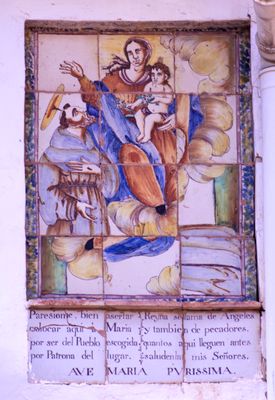 Paresiome, bien asertar
colocar aqui a Maria
por ser del Pueblo escogida
por Patrona del lugar.
Reyna sellama de Angeles
y tambien de pecadores.
quantos aqui lleguen antes
saludenla mis Señores.
AVE MARIA PVRISSIMA.